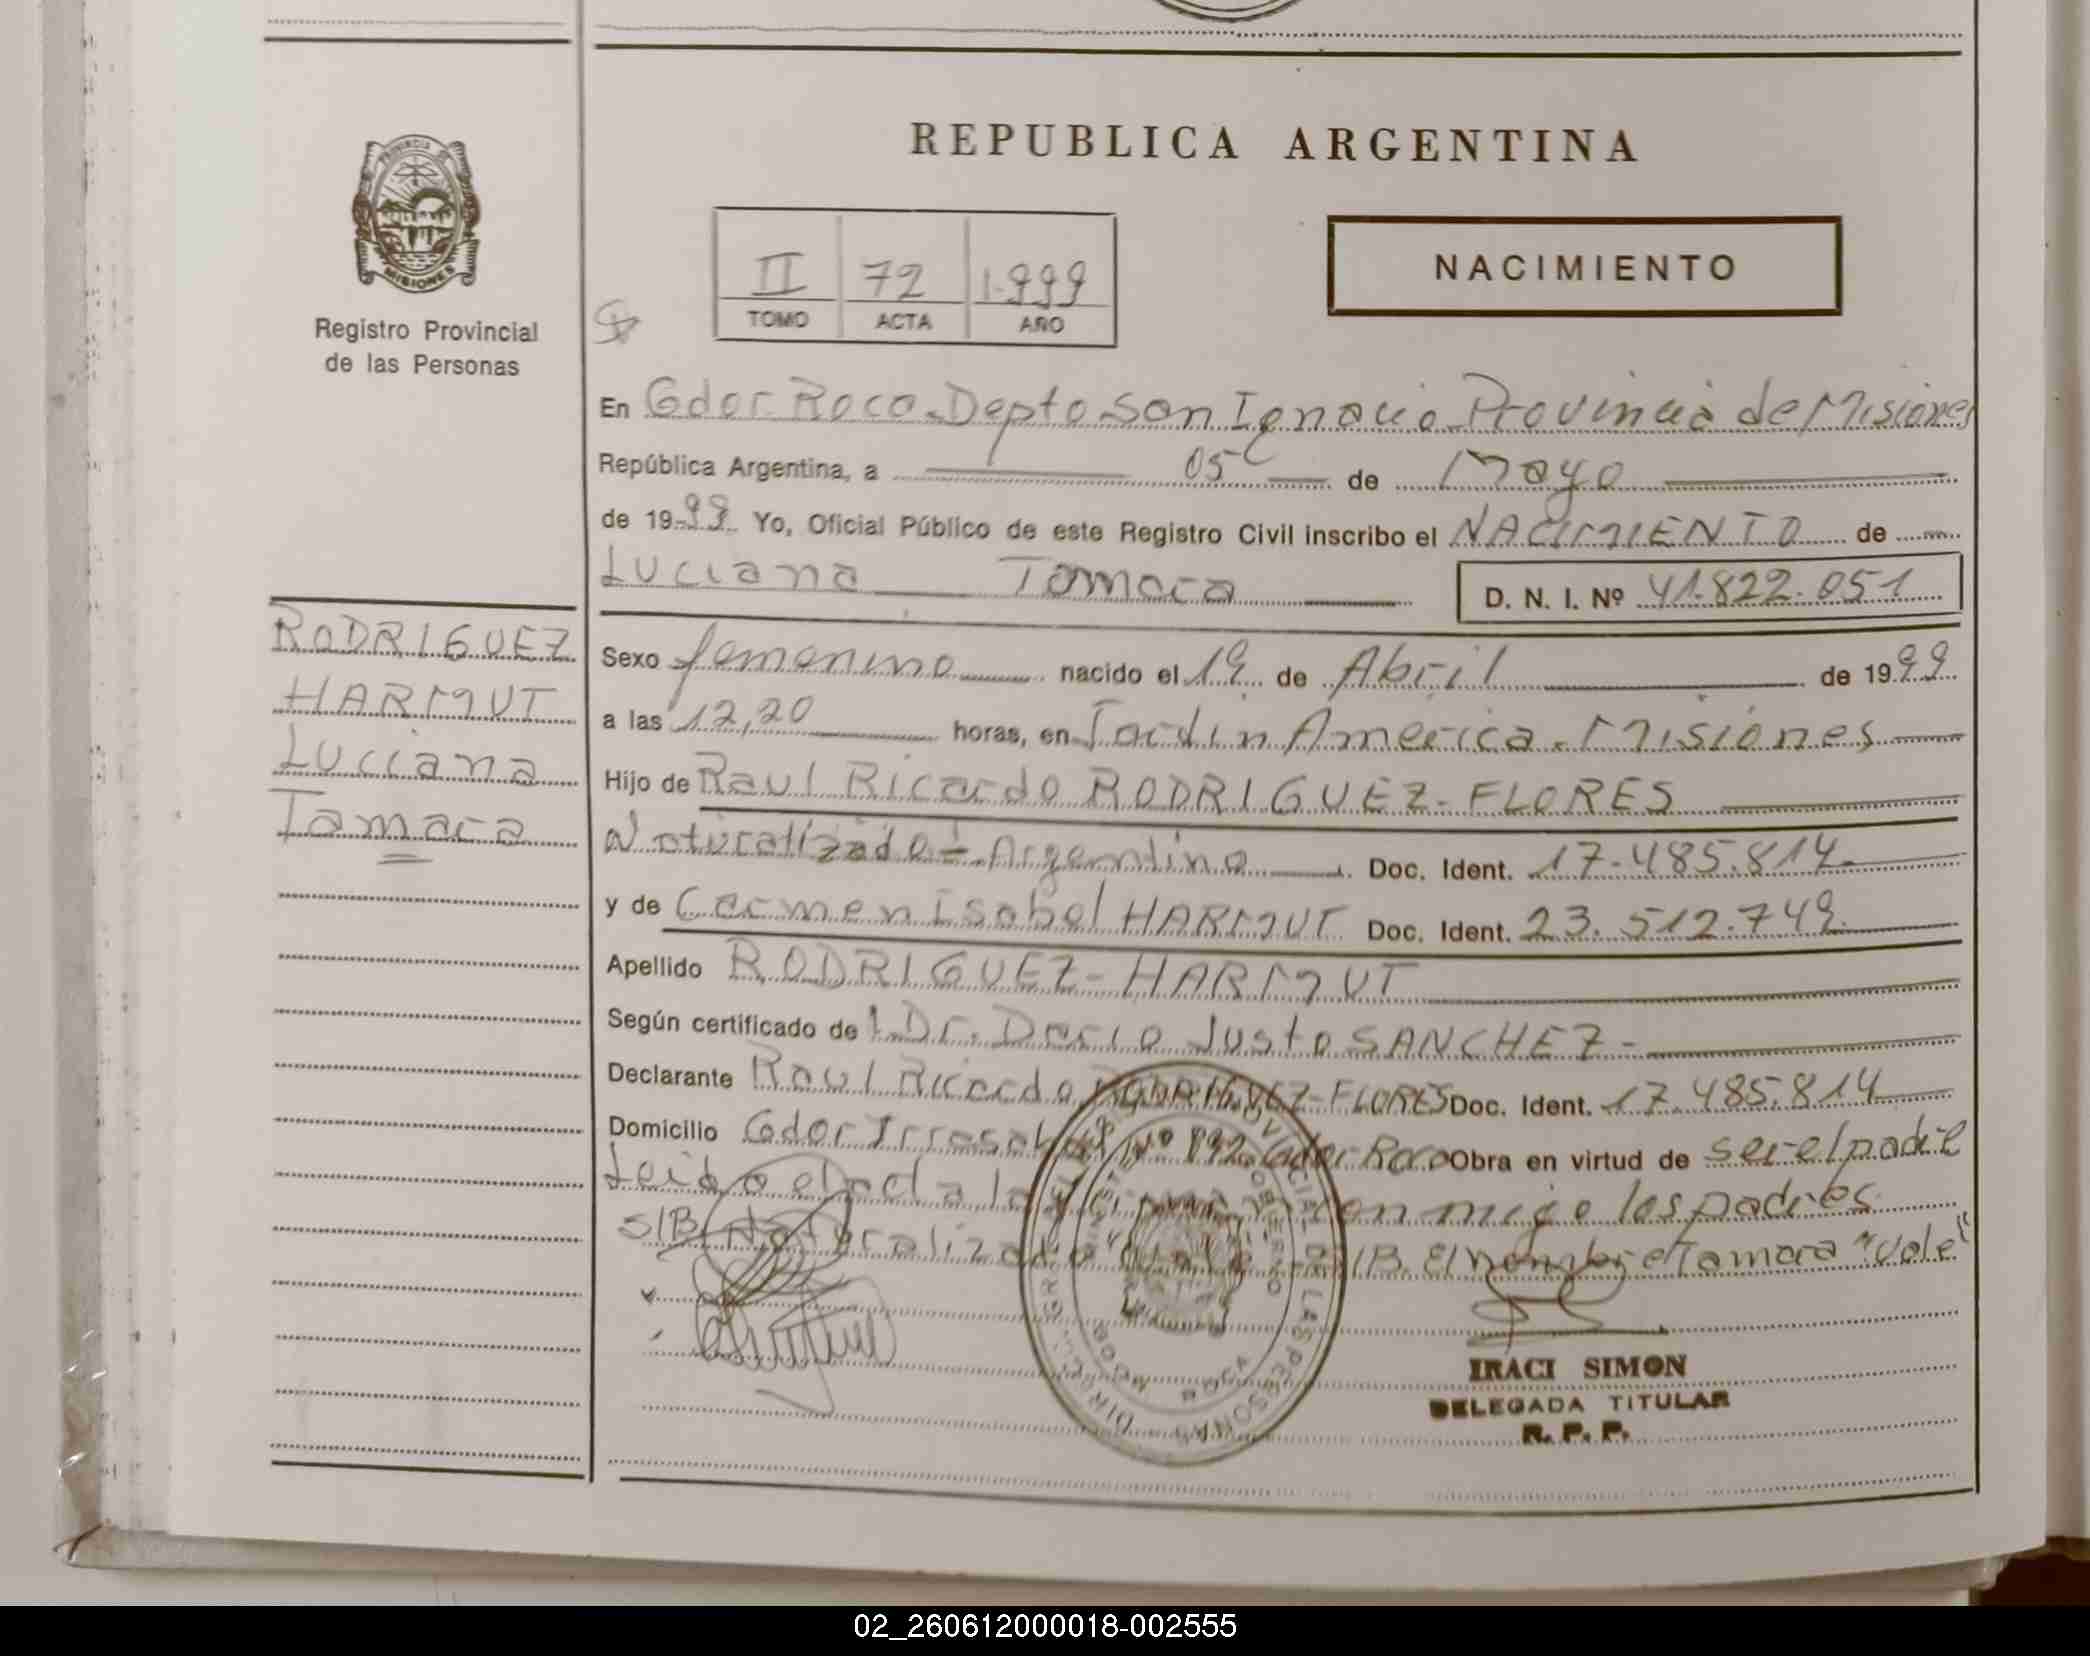 REPUBLICA ARGENTINA
PROVINCIA DE
MISIONES
Registro Provincial
de las Personas
II 72 1.999
TOMO ACTA AÑO
NACIMIENTO
En Gdor. Roca. Depto San Ignacio Provincia de Misiones
República Argentina, a 05 de Mayo
de 1999 Yo, Oficial Público de este Registro Civil inscribo el NACIMIENTO de
Luciana Tamara D. N. I. Nº 41.822.051
RODRIGUEZ
HARMUT
Luciana
Tamara
Sexo femenino nacido el 19 de Abril de 1999
a las 12,20 horas, en Jardin America. Misiones
Hijo de Raul Ricardo RODRIGUEZ-FLORES
Naturalizado - Argentino Doc. Ident. 17.485.814.
y de Carmen Isabel HARMUT Doc. Ident. 23.512.749.
Apellido RODRIGUEZ-HARMUT
Según certificado de l. Dr. Dario Justo SANCHEZ-
Declarante Raul Ricardo RODRIGUEZ-FLORES Doc. Ident. 17.485.814
Domicilio Gdor Nº 892. Gdor. Roca Obra en virtud de ser el padre
Leida el acta la conmigo los padres
S/B. Naturalizado "Vale" - S/B. El nombre Tamara "Vale"
IRACI SIMON
DELEGADA TITULAR
R. P. P.
02_260612000018-002555